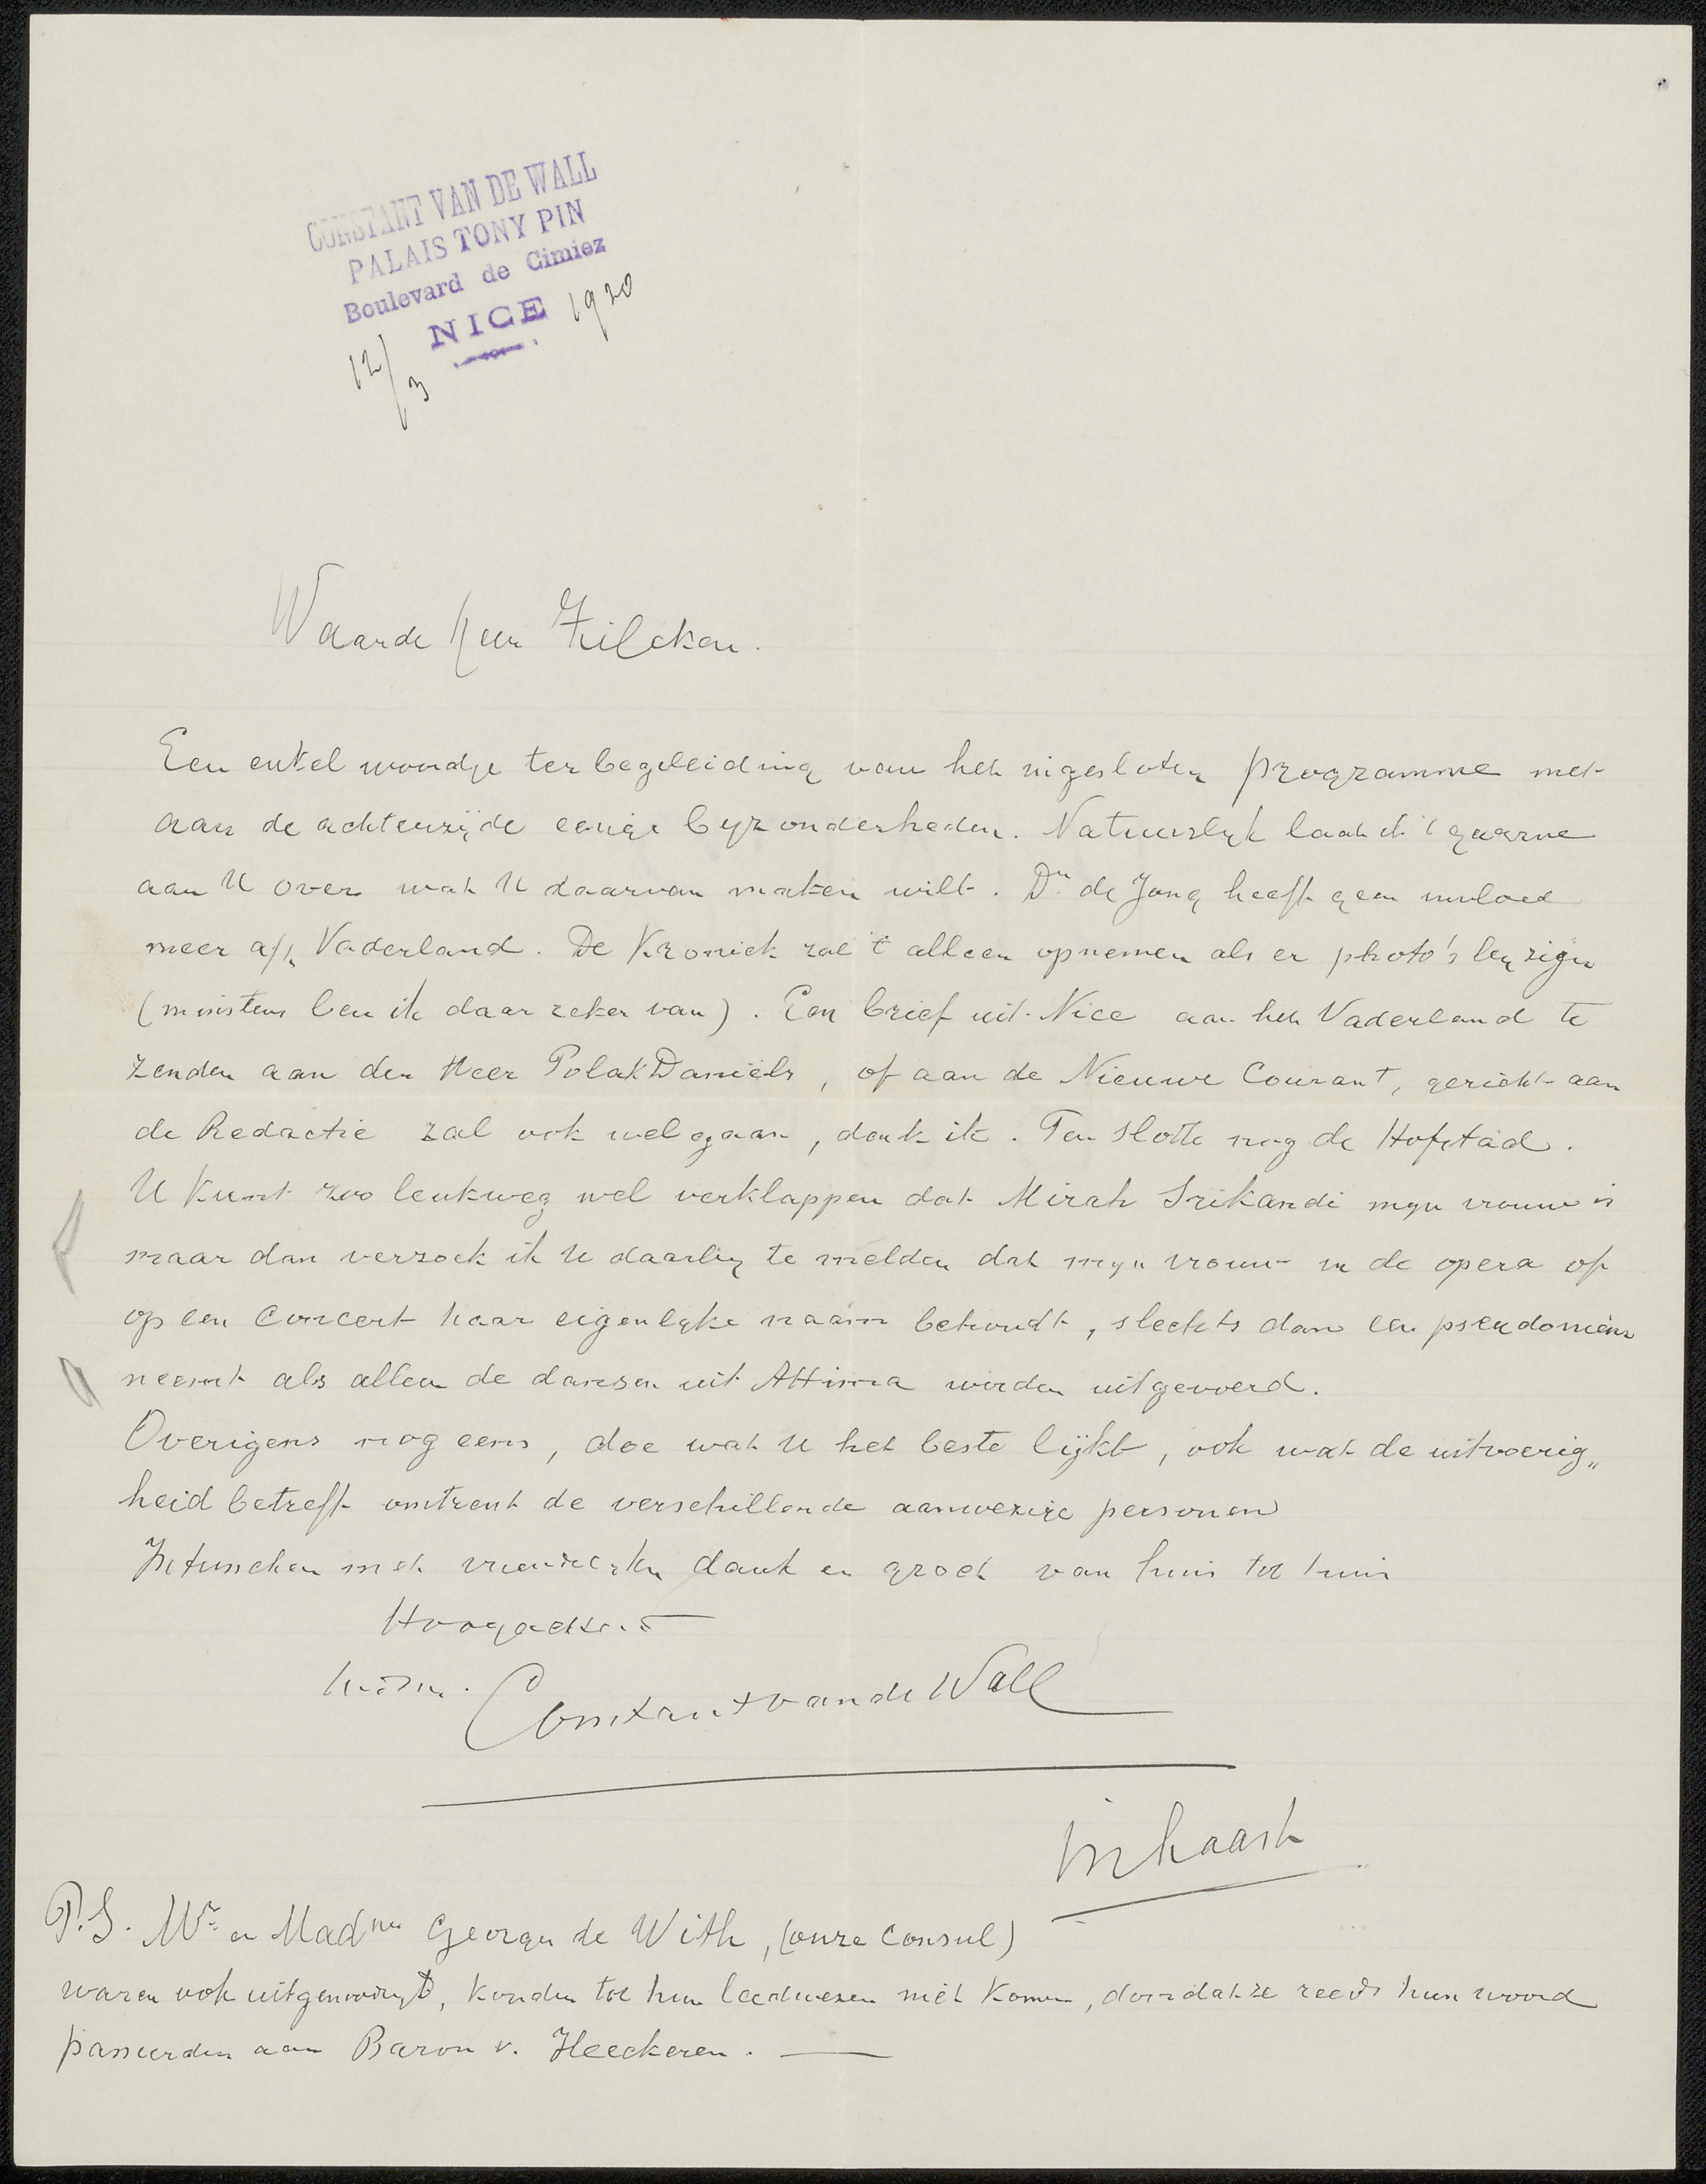 CONSTANT VAN DE WALL
PALAIS TONY PIN
Boulevard de Cimiez
NICE
12/3 1920
Waarde Heer Zilcken.
Een enkel woordje ter begeleiding van het ingesloten programme met
aan de achterzijde eenige byzonderheden. Natuurlyk laat ik 't gaarne
aan U over wat U daarvan maken wilt. Dr. de Jong heeft geen invloed
meer a/h Vaderland. De Kroniek zal 't alleen opnemen als er photo's by zijn
(minstens ben ik daar zeker van). Een brief uit Nice aan het Vaderland te
zenden aan den Heer Polak Daniëls, of aan de Nieuwe Courant, gericht aan
de Redactie zal ook wel gaan, denk ik. Ten slotte nog de Hofstad.
U kunt zoo leukweg wel verklappen dat Mirah Srikandi myn vrouw is
maar dan verzoek ik U daarby te melden dat myn vrouw in de opera of
op een Concert haar eigenlyke naam behoudt, slechts dan een pseudoniem
neemt als alleen de dansen uit Attima worden uitgevoerd.
Overigens nog eens, doe wat U het beste lijkt, ook wat de uitvoerig„
heid betreft omtrent de verschillende aanwezige personen
Intusschen met vriendelyke dank en groet van huis tot huis
Hoogachtend
Constant van de Wall
in haast
P.S. Mr. en Madme George de With, (onze Consul)
waren ook uitgenoodigd, konden tot hun leedwezen niet komen, doordat ze reeds hun woord
passeerden aan Baron v. Heeckeren.